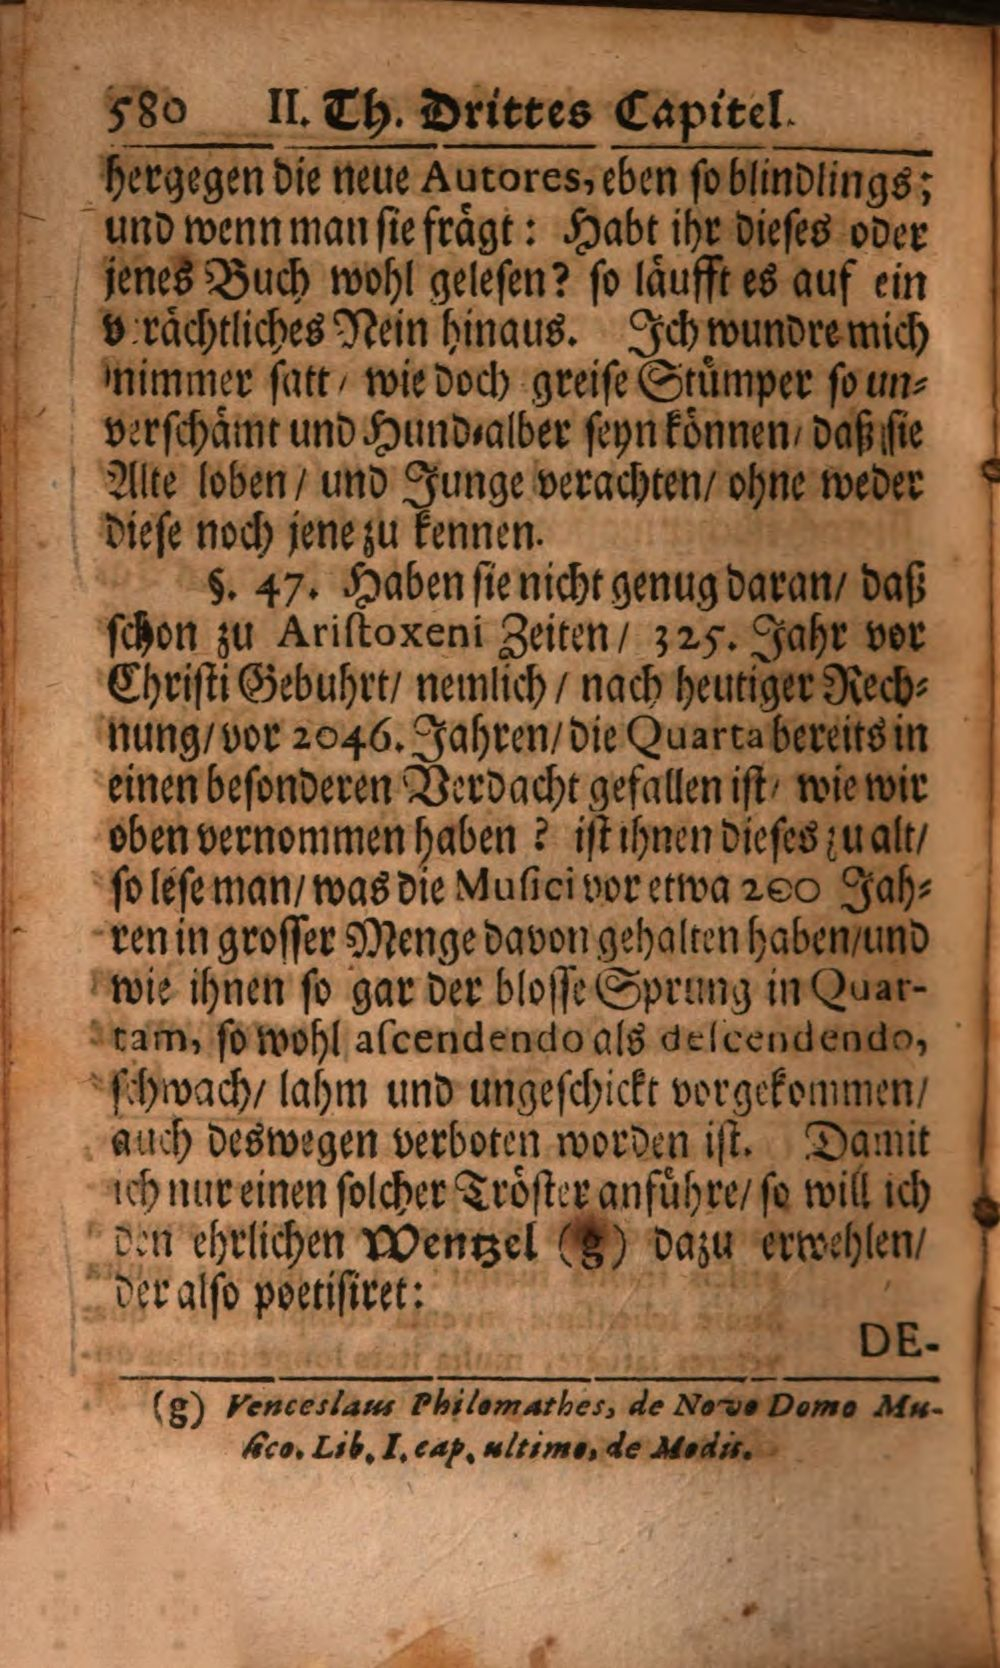 580 II. Th. Drittes Capitel.
hergegen die neue Autores, eben so blindlings;
und wenn man sie frägt: Habt ihr dieses oder
jenes Buch wohl gelesen? so läufft es auf ein
v rächtliches Nein hinaus. Ich wundre mich
nimmer satt / wie doch greise Stümper so un-
verschämt und Hund-alber seyn können / daß sie
Alte loben / und Junge verachten / ohne weder
diese noch jene zu kennen.
§. 47. Haben sie nicht genug daran / daß
schon zu Aristoxeni Zeiten / 325. Jahr vor
Christi Gebuhrt / nemlich / nach heutiger Rech-
nung / vor 2046. Jahren / die Quarta bereits in
einen besonderen Verdacht gefallen ist / wie wir
oben vernommen haben? ist ihnen dieses zu alt /
so lese man / was die Musici vor etwa 200 Jah-
ren in grosser Menge davon gehalten haben / und
wie ihnen so gar der blosse Sprung in Quar-
tam, so wohl ascendendo als descendendo,
schwach / lahm und ungeschickt vorgekommen /
auch deswegen verboten worden ist. Damit
ich nur einen solcher Tröster anführe / so will ich
den ehrlichen Wentzel (g) dazu erwehlen /
der also poetisiret:
DE-
(g) Venceslaus Philomathes, de Novo Domo Mu-
sico. Lib. I. cap. ultimo, de Modis.